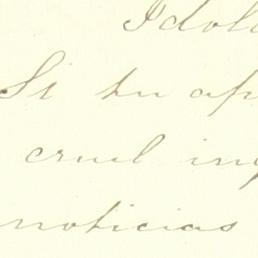 Idol
Si tu ap
cruel in
noticias